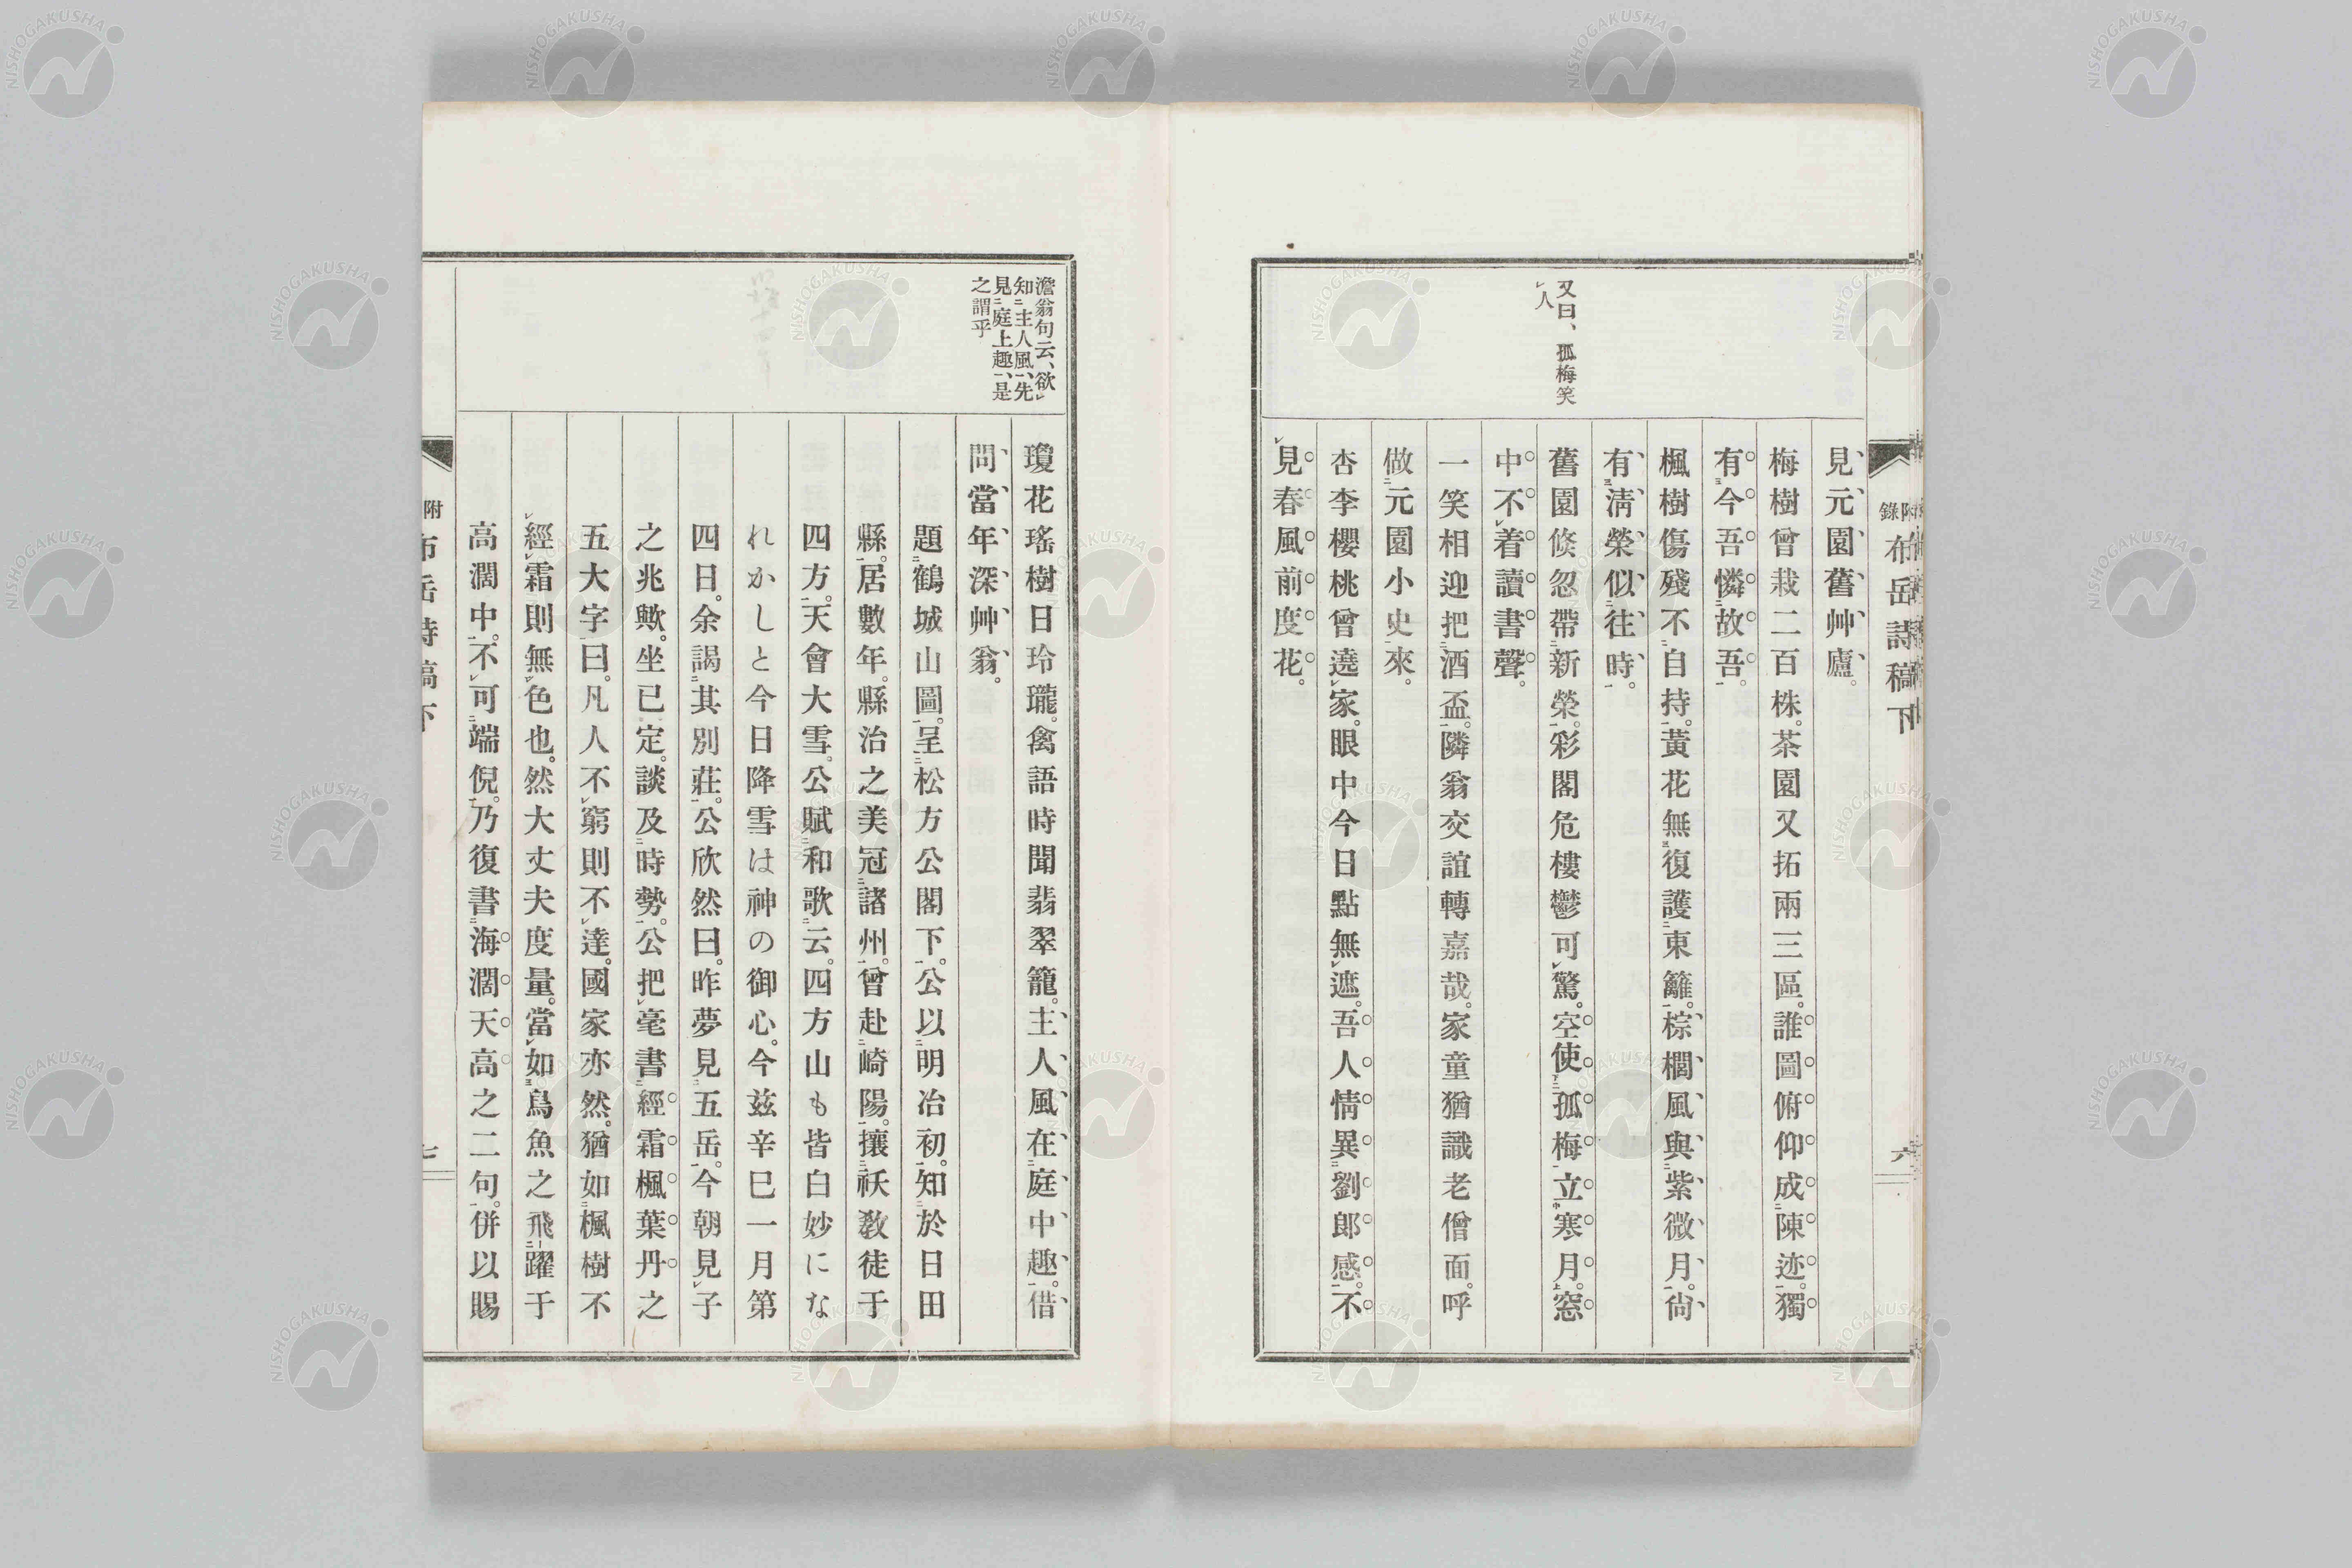 附錄 布岳詩稿下 六
又曰、孤梅笑
人
見元園舊艸廬。
梅樹曾栽二百株。茶園又拓兩三區。誰圖俯仰成陳迹。獨
有今吾憐故吾。
楓樹傷殘不自持。黃花無復護東籬。棕櫚風與紫微月。尙
有淸榮似往時。
舊園倏忽帶新榮。彩閣危樓鬱可驚。空使孤梅立寒月。窓
中不着讀書聲。
一笑相迎把酒盃。隣翁交誼轉嘉哉。家童猶識老僧面。呼
做元園小史來。
杏李櫻桃曾遶家。眼中今日點無遮。吾人情異劉郎感。不
見春風前度花。
澹翁句云、欲
知主人風、先
見庭上趣、是
之謂乎
瓊花瑤樹日玲瓏。禽語時聞翡翠籠。主人風在庭中趣。借
問當年深艸翁。
題鶴城山圖。呈松方公閣下。公以明治初。知於日田
縣。居數年。縣治之美冠諸州。曾赴崎陽。攘祅敎徒于
四方。天會大雪。公賦和歌云。四方山も皆白妙にな
れかしと今日降雪は神の御心。今玆辛巳一月第
四日。余謁其別莊。公欣然曰。昨夢見五岳。今朝見子
之兆歟。坐已定。談及時勢。公把毫書經霜楓葉丹之
五大字曰。凡人不窮則不達。國家亦然。猶如楓樹不
經霜則無色也。然大丈夫度量。當如鳥魚之飛躍于
高濶中。不可端倪。乃復書海濶天高之二句。併以賜
附 布岳詩稿下 七
NISHOGAKUSHA